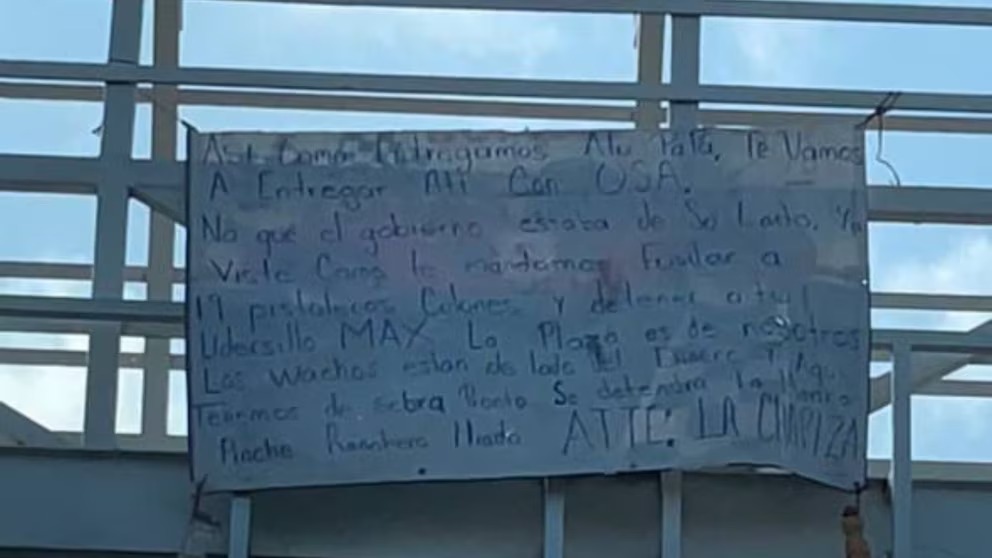 Así Como Entregamos Atu Papá, Te Vamos
A Entregar Ati Con USA.
No que el gobierno estaba de Su Lado, Ya
Viste Como le mandamos Fusilar a
19 pistolocos Culones y detener a tu
Lidersillo MAX La Plaza es de nosotros
Los wachos estan de lado del Dinero Y Aqui
Tenemos de sobra Pronto Se detendra la
Ranchero ATTE: LA CHAPIZA